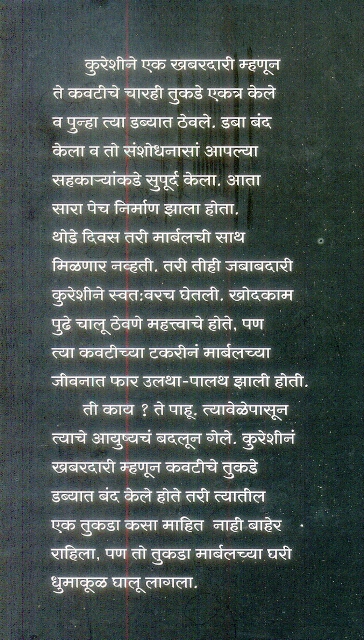 कुरेशीने एक खबरदारी म्हणून
ते कवटीचे चारही तुकडे एकत्र केले
व पुन्हा त्या डब्यात ठेवले. डबा बंद
केला व तो संशोधनासां आपल्या
सहकाऱ्यांकडे सुपूर्द केला. आता
सारा पेच निर्माण झाला होता.
थोडे दिवस तरी मार्बलची साथ
मिळणार नव्हती. तरी तीही जबाबदारी
कुरेशीने स्वत:वरच घेतली. खोदकाम
पुढे चालू ठेवणे महत्त्वाचे होते, पण
त्या कवटीच्या टकरीनं मार्बलच्या
जीवनात फार उलथा-पालथ झाली होती.
ती काय ? ते पाहू. त्यावेळेपासून
त्याचे आयुष्यचं बदलून गेले. कुरेशीनं
खबरदारी म्हणून कवटीचे तुकडे
डब्यात बंद केले होते तरी त्यातील
एक तुकडा कसा माहित नाही बाहेर
राहिला, पण तो तुकडा मार्बलच्या घरी
धुमाकूळ घालू लागला.